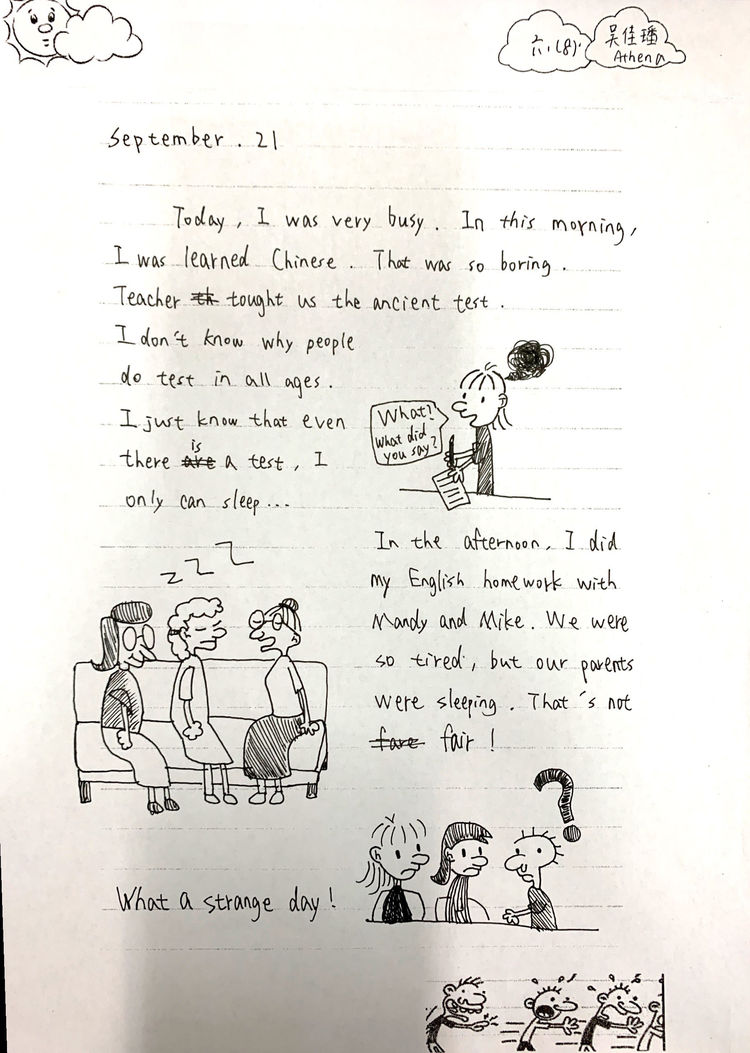 六.(8)
吴佳璠
Athena
September. 21
Today, I was very busy. In this morning,
I was learned Chinese. That was so boring.
Teacher th tought us the ancient test.
I don't know why people
do test in all ages.
I just know that even
there are is a test, I
only can sleep...
What?
what did
you say?
In the afternoon, I did
my English homework with
Mandy and Mike. We were
so tired, but our parents
were sleeping. That's not
fare fair!
z z z
?
What a strange day!